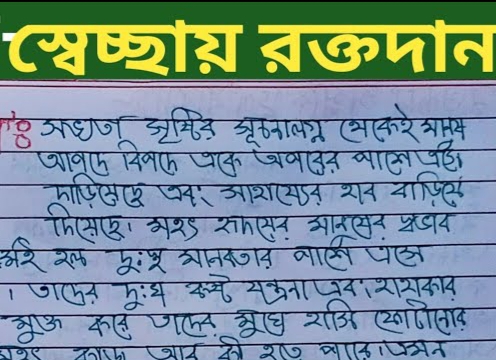 স্বেচ্ছায় রক্তদান
সভ্যতা সৃষ্টির সূচনালগ্ন থেকেই মানব
আপদে বিপদে একে অপরের পাশে এসে
দাঁড়িয়েছে এবং সাহায্যের হাত বাড়িয়ে
দিয়েছে। মহৎ হৃদয়ের মানুষের স্বভাব
হল দুঃস্থ মানবতার পাশে এসে
। তাদের দুঃখ কষ্ট যন্ত্রনা এবং হাহাকার
মুক্ত করে তাদের মুখে হাসি ফোটানোর
মহৎ কাজ আর কী হতে পারে। এমন